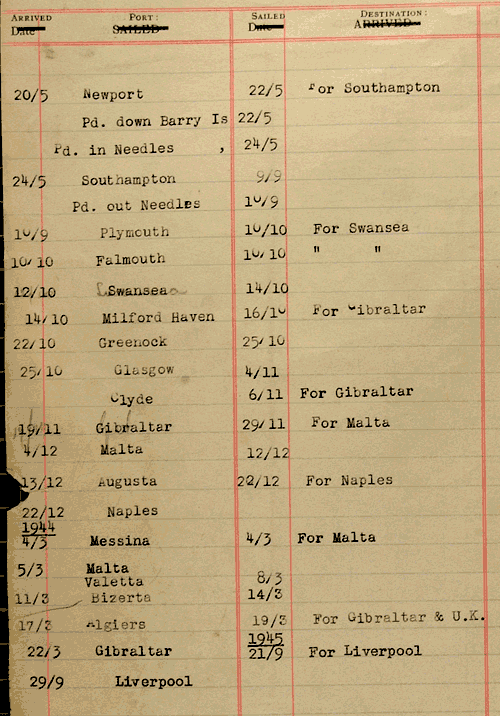 ARRIVED PORT: SAILED DESTINATION:
Date SAILED Date ARRIVED
20/5 Newport 22/5 For Southampton
Pd. down Barry Is 22/5
Pd. in Needles , 24/5
24/5 Southampton 9/9
Pd. out Needles 10/9
10/9 Plymouth 10/10 For Swansea
10/10 Falmouth 10/10 " "
12/10 Swansea 14/10
14/10 Milford Haven 16/10 For Gibraltar
22/10 Greenock 25/10
25/10 Glasgow 4/11
Clyde 6/11 For Gibraltar
19/11 Gibraltar 29/11 For Malta
4/12 Malta 12/12
13/12 Augusta 22/12 For Naples
22/12 Naples
1944
4/3 Messina 4/3 For Malta
5/3 Malta
Valetta 8/3
11/3 Bizerta 14/3
17/3 Algiers 19/3 For Gibraltar & U.K.
1945
22/3 Gibraltar 21/9 For Liverpool
29/9 Liverpool